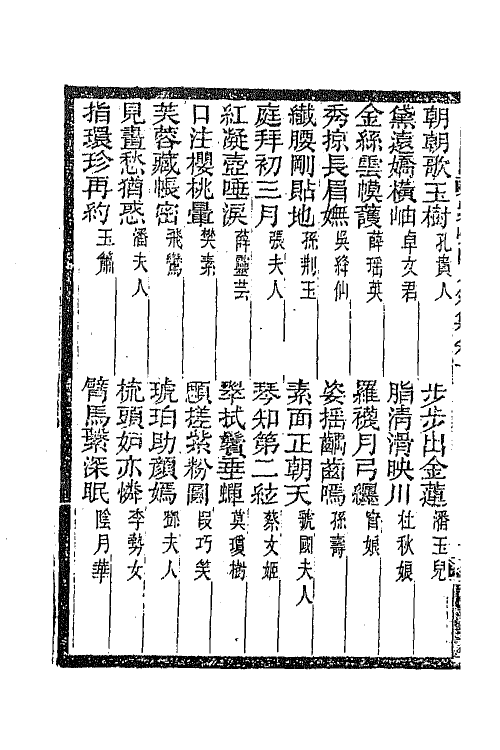 朝朝歌玉樹 孔貴人 步步出金蓮 潘玉兒
黛遠嬌橫岫 卓文君 脂清滑映川 杜秋娘
金絲雲幙護 薛瑶英 羅襪月弓纏 窅娘
秀掠長眉嫵 吳絳仙 姿摇齲齒嫣 孫壽
纖腰剛貼地 孫荆玉 素面正朝天 虢國夫人
庭拜初三月 張夫人 琴知第二絃 蔡文姬
紅凝壺唾淚 薛靈芸 翠拭鬢垂蟬 莫瓊樹
口注櫻桃暈 樊素 頤搓紫粉圓 段巧笑
芙蓉藏帳密 飛鸞 琥珀助顔嫣 鄧夫人
見畫愁猶惑 潘夫人 梳頭妒亦憐 李勢女
指環珍再約 玉簫 臂馬繫深眠 陰月華